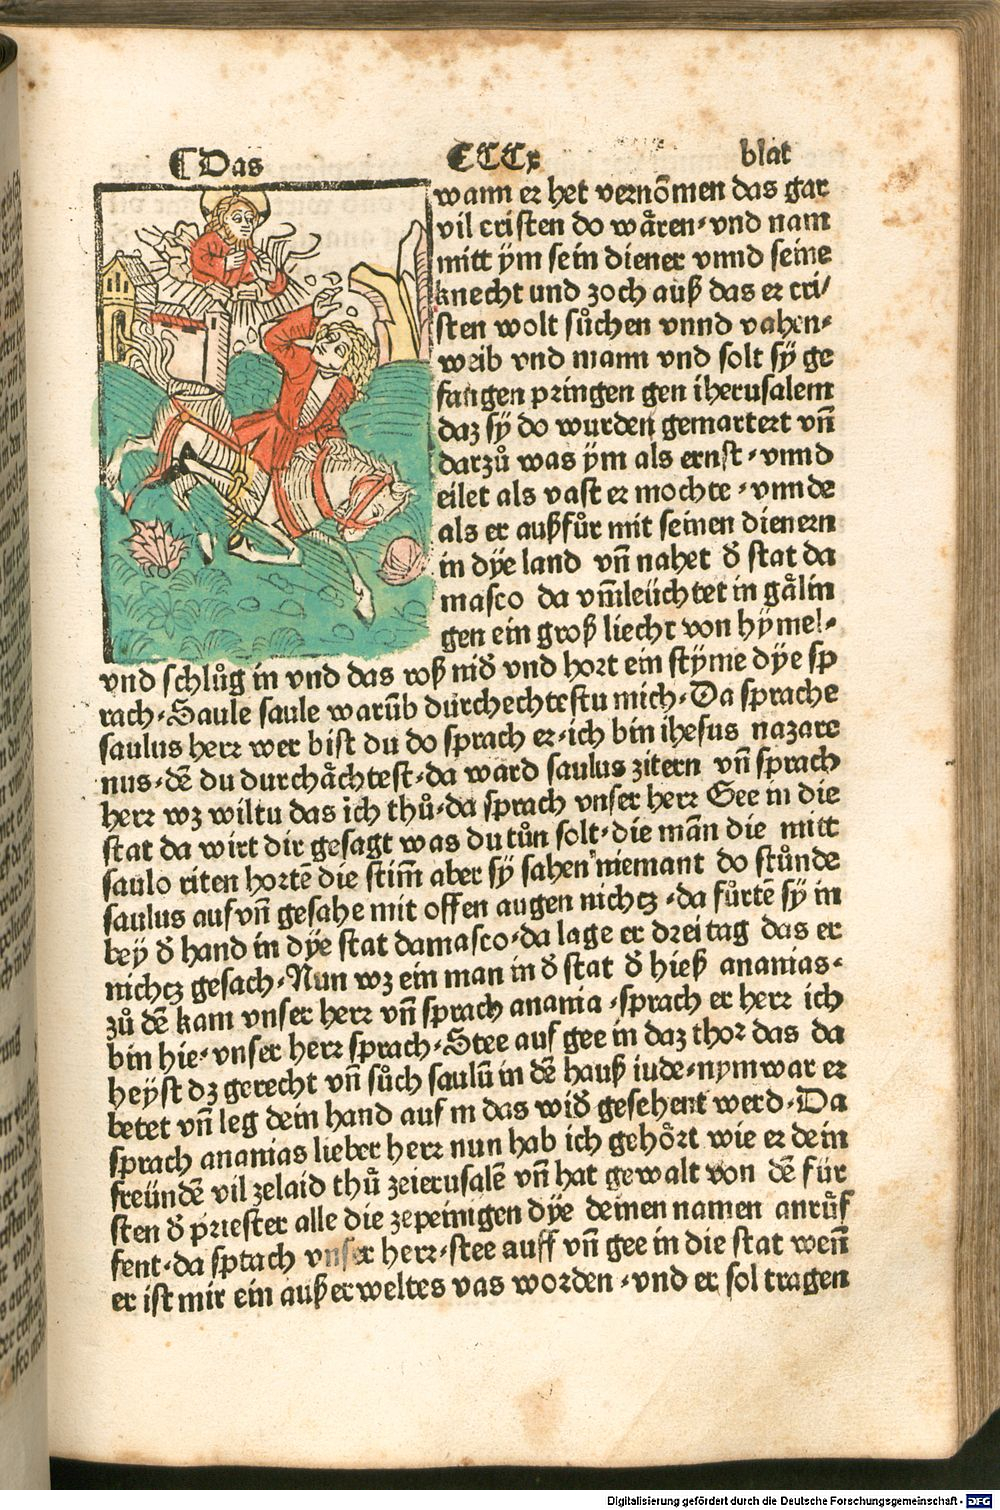 ⸿Das CCCx blat
wann er het vernōmen das gar
vil cristen do wåren⸗vnd nam
mitt ẏm sein diener vnnd seine
knecht und zoch auß das er cri/
sten wolt sůchen vnnd vahen⸗
weib vnd mann vnd solt sẏ ge
fangen pringen gen iherusalem
daz sẏ do wurden gemartert vñ
darzů was ẏm als ernst⸗vnnd
eilet als vast er mochte⸗vnnde
als er außfůr mit seinen dienern
in dẏe land vñ nahet d̄ stat da
masco da vm̄leüchtet in gålin
gen ein groß liecht von hẏmel⸗
vnd schlůg in vnd das roß nid̄ vnd hort ein stẏme dẏe sp
rach⸗Saule saule warūb durchechtestu mich⸗Da sprache
saulus herr wer bist du do sprach er⸗ich bin ihesus nazare
nus⸗dē du durchåchtest⸗da ward saulus zitern vñ sprach
herr wz wiltu das ich thů⸗da sprach vnser herr Gee in die
stat da wirt dir gesagt was du tůn solt⸗die mān die mitt
saulo riten hortē die stim̄ aber sẏ sahen niemant do stůnde
saulus auf vñ gesahe mit offen augen nichtz⸗da fůrtē sẏ in
beẏ d̄ hand in dẏe stat damasco⸗da lage er drei tag das er
nichtz gesach⸗Nun wz ein man in d̄ stat d̄ hieß ananias⸗
zů dē kam vnser herr vñ sprach anania⸗sprach er herr ich
bin hie⸗vnser herr sprach⸗Stee auf gee in daz thor das da
heẏst dz gerecht vñ sůch saulū in dē hauß iude⸗nym war er
betet vñ leg dein hand auf in das wid̄ gesehent werd⸗Da
sprach ananias lieber herr nun hab ich gehôrt wie er dein
freündē vil zelaid thů zeierusalē vñ hat gewalt von dē für
sten d̄ priester alle die zepeinigen dẏe deinen namen anrůf
fent⸗da sprach vnser herr⸗stee auff vñ gee in die stat weñ
er ist mir ein außerweltes vas worden⸗vnd er sol tragen
Digitalisierung gefördert durch die Deutsche Forschungsgemeinschaft - DFG